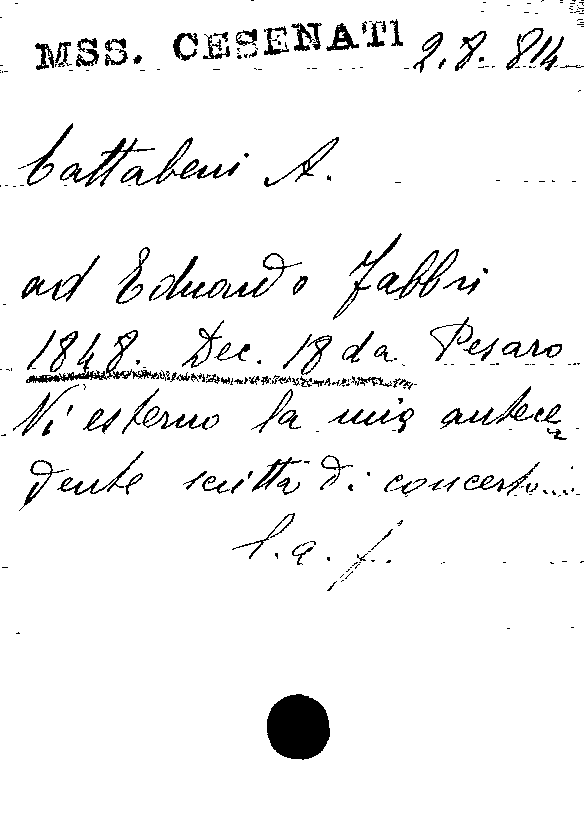 MSS. CESENATI 2.8.814
Cattabeni A.
ad Eduardo Fabbri
1848. Dec. 18 da Pesaro
Vi esterno la mia antece
dente scritta di concerto...
l.a.f.